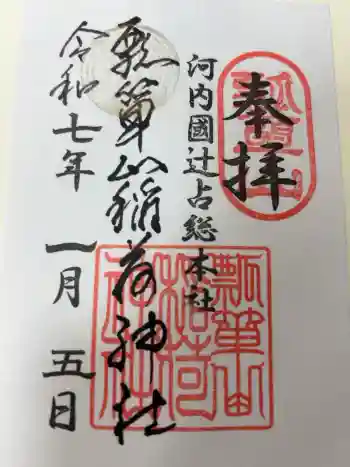 奉拝
河内國辻占総本社
瓢簞山稲荷神社
令和七年 一月 五日
瓢簞山
稲荷
神社